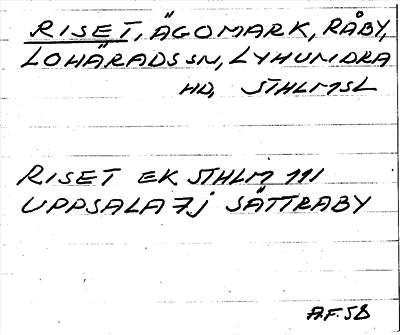 RISET, ÄGOMARK, RÅBY,
LOHÄRADS SN, LYHUNDRA
HD, STHLMSL
RISET EK STHLM 111
UPPSALA 7j SÄTTRABY
A.F.58